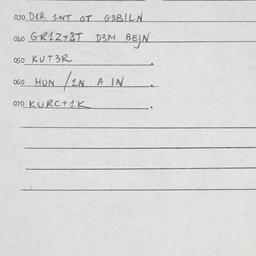 030 DER 2NT OT G3BILN
040 GR1Z+3T D3M BEJN
050 KUT3R .
060 HUN /1N A IN .
070 KURC+1K .